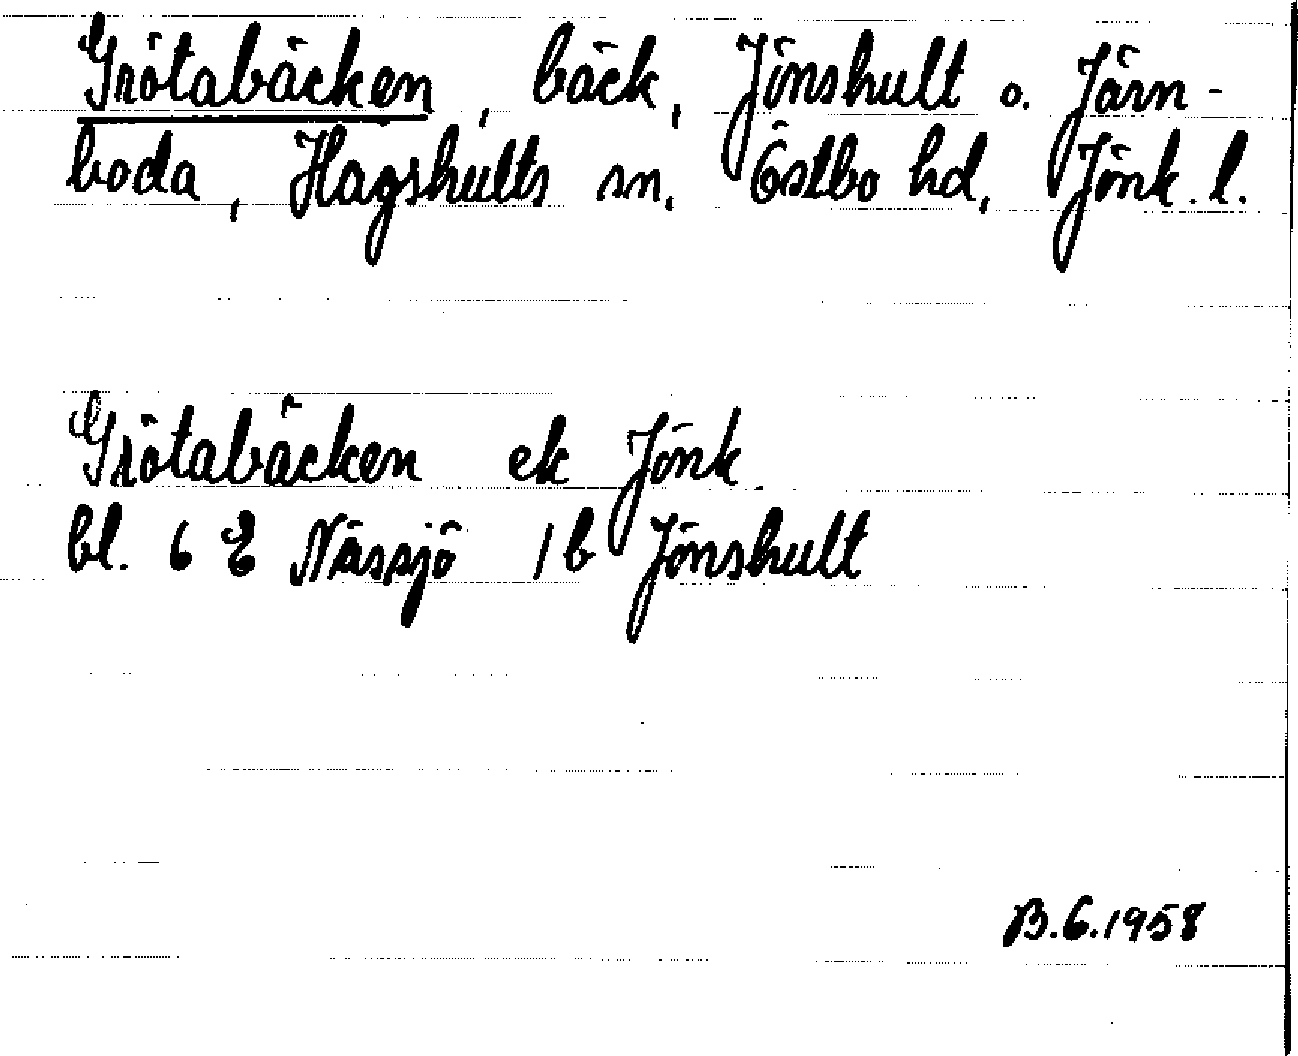 Grötabäcken, bäck, Jönshult o. Järn-
boda, Hagshults sn, Östbo hd, Jönk. l.
Grötabäcken ek Jönk
bl. 6 E Nässjö 1b Jönshult
B.G.1958